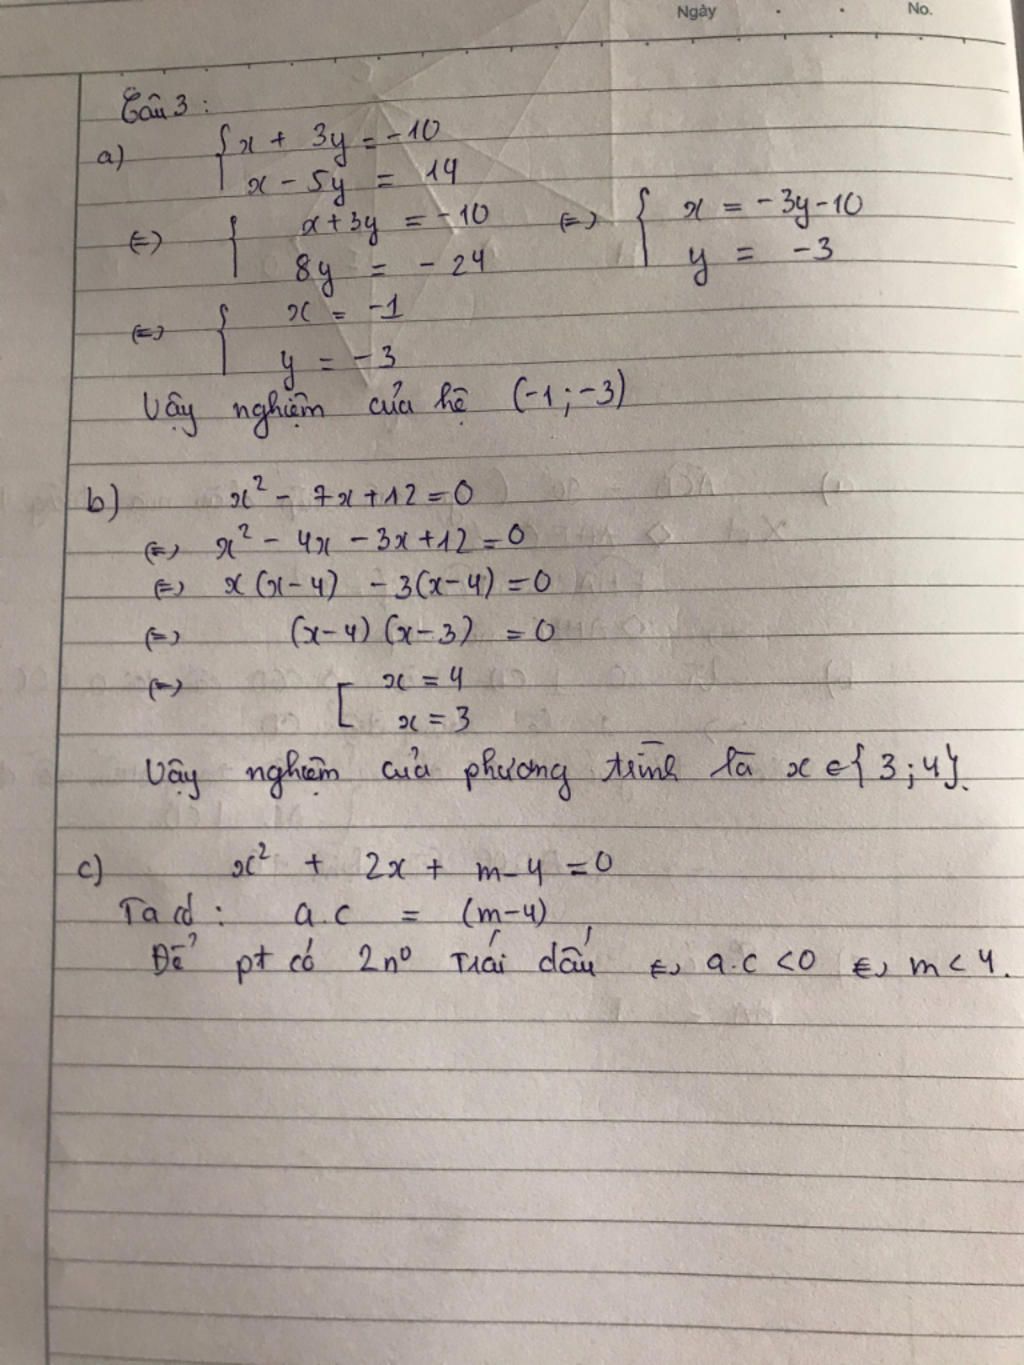 Ngày . . No.
Câu 3 :
a) { x + 3y = -10
x - 5y = 14
(=) { x + 3y = -10 (=) { x = -3y - 10
8y = - 24 y = -3
(=) { x = -1
y = -3
Vậy nghiệm của hệ (-1 ; -3)
b) x² - 7x + 12 = 0
(=) x² - 4x - 3x + 12 = 0
(=) x (x - 4) - 3(x - 4) = 0
(=) (x - 4) (x - 3) = 0
(=) [ x = 4
x = 3
Vậy nghiệm của phương trình là x ∈ { 3 ; 4 }.
c) x² + 2x + m - 4 = 0
Ta có : a.c = (m - 4)
Để pt có 2 n⁰ trái dấu (=) a.c < 0 (=) m < 4.